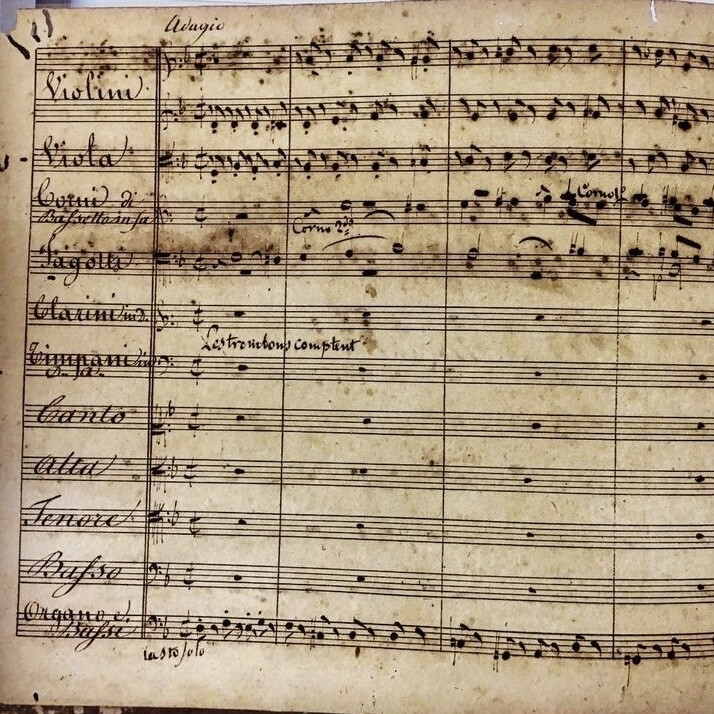 Adagio
Violini
Viola
Corni di
Bassetto in fa
Corno 1º
Corno 2do
Fagotti
Clarini in d.
Les trombons comptent
Timpani in
D. la.
Canto
Alto
Tenore
Basso
Organo e
Bassi
tasto solo